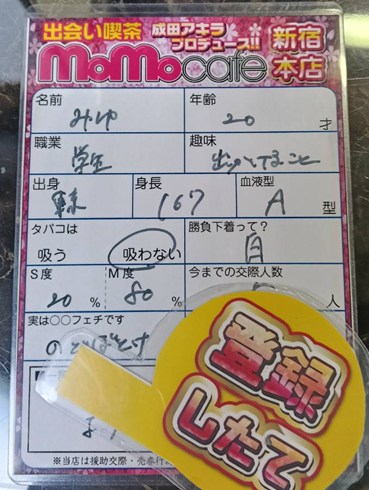 出会い喫茶
成田アキラ
プロデュース!!
新宿
本店
MoMocafe
名前
みゆ
年齢
20 才
職業
学生
趣味
出身
東京
身長
167
血液型
A 型
タバコは
吸う 吸わない
勝負下着って?
白
S度
20 %
M度
80 %
今までの交際人数
人
実は○○フェチです
のどぼとけ
登録
したて
※当店は援助交際・売春行